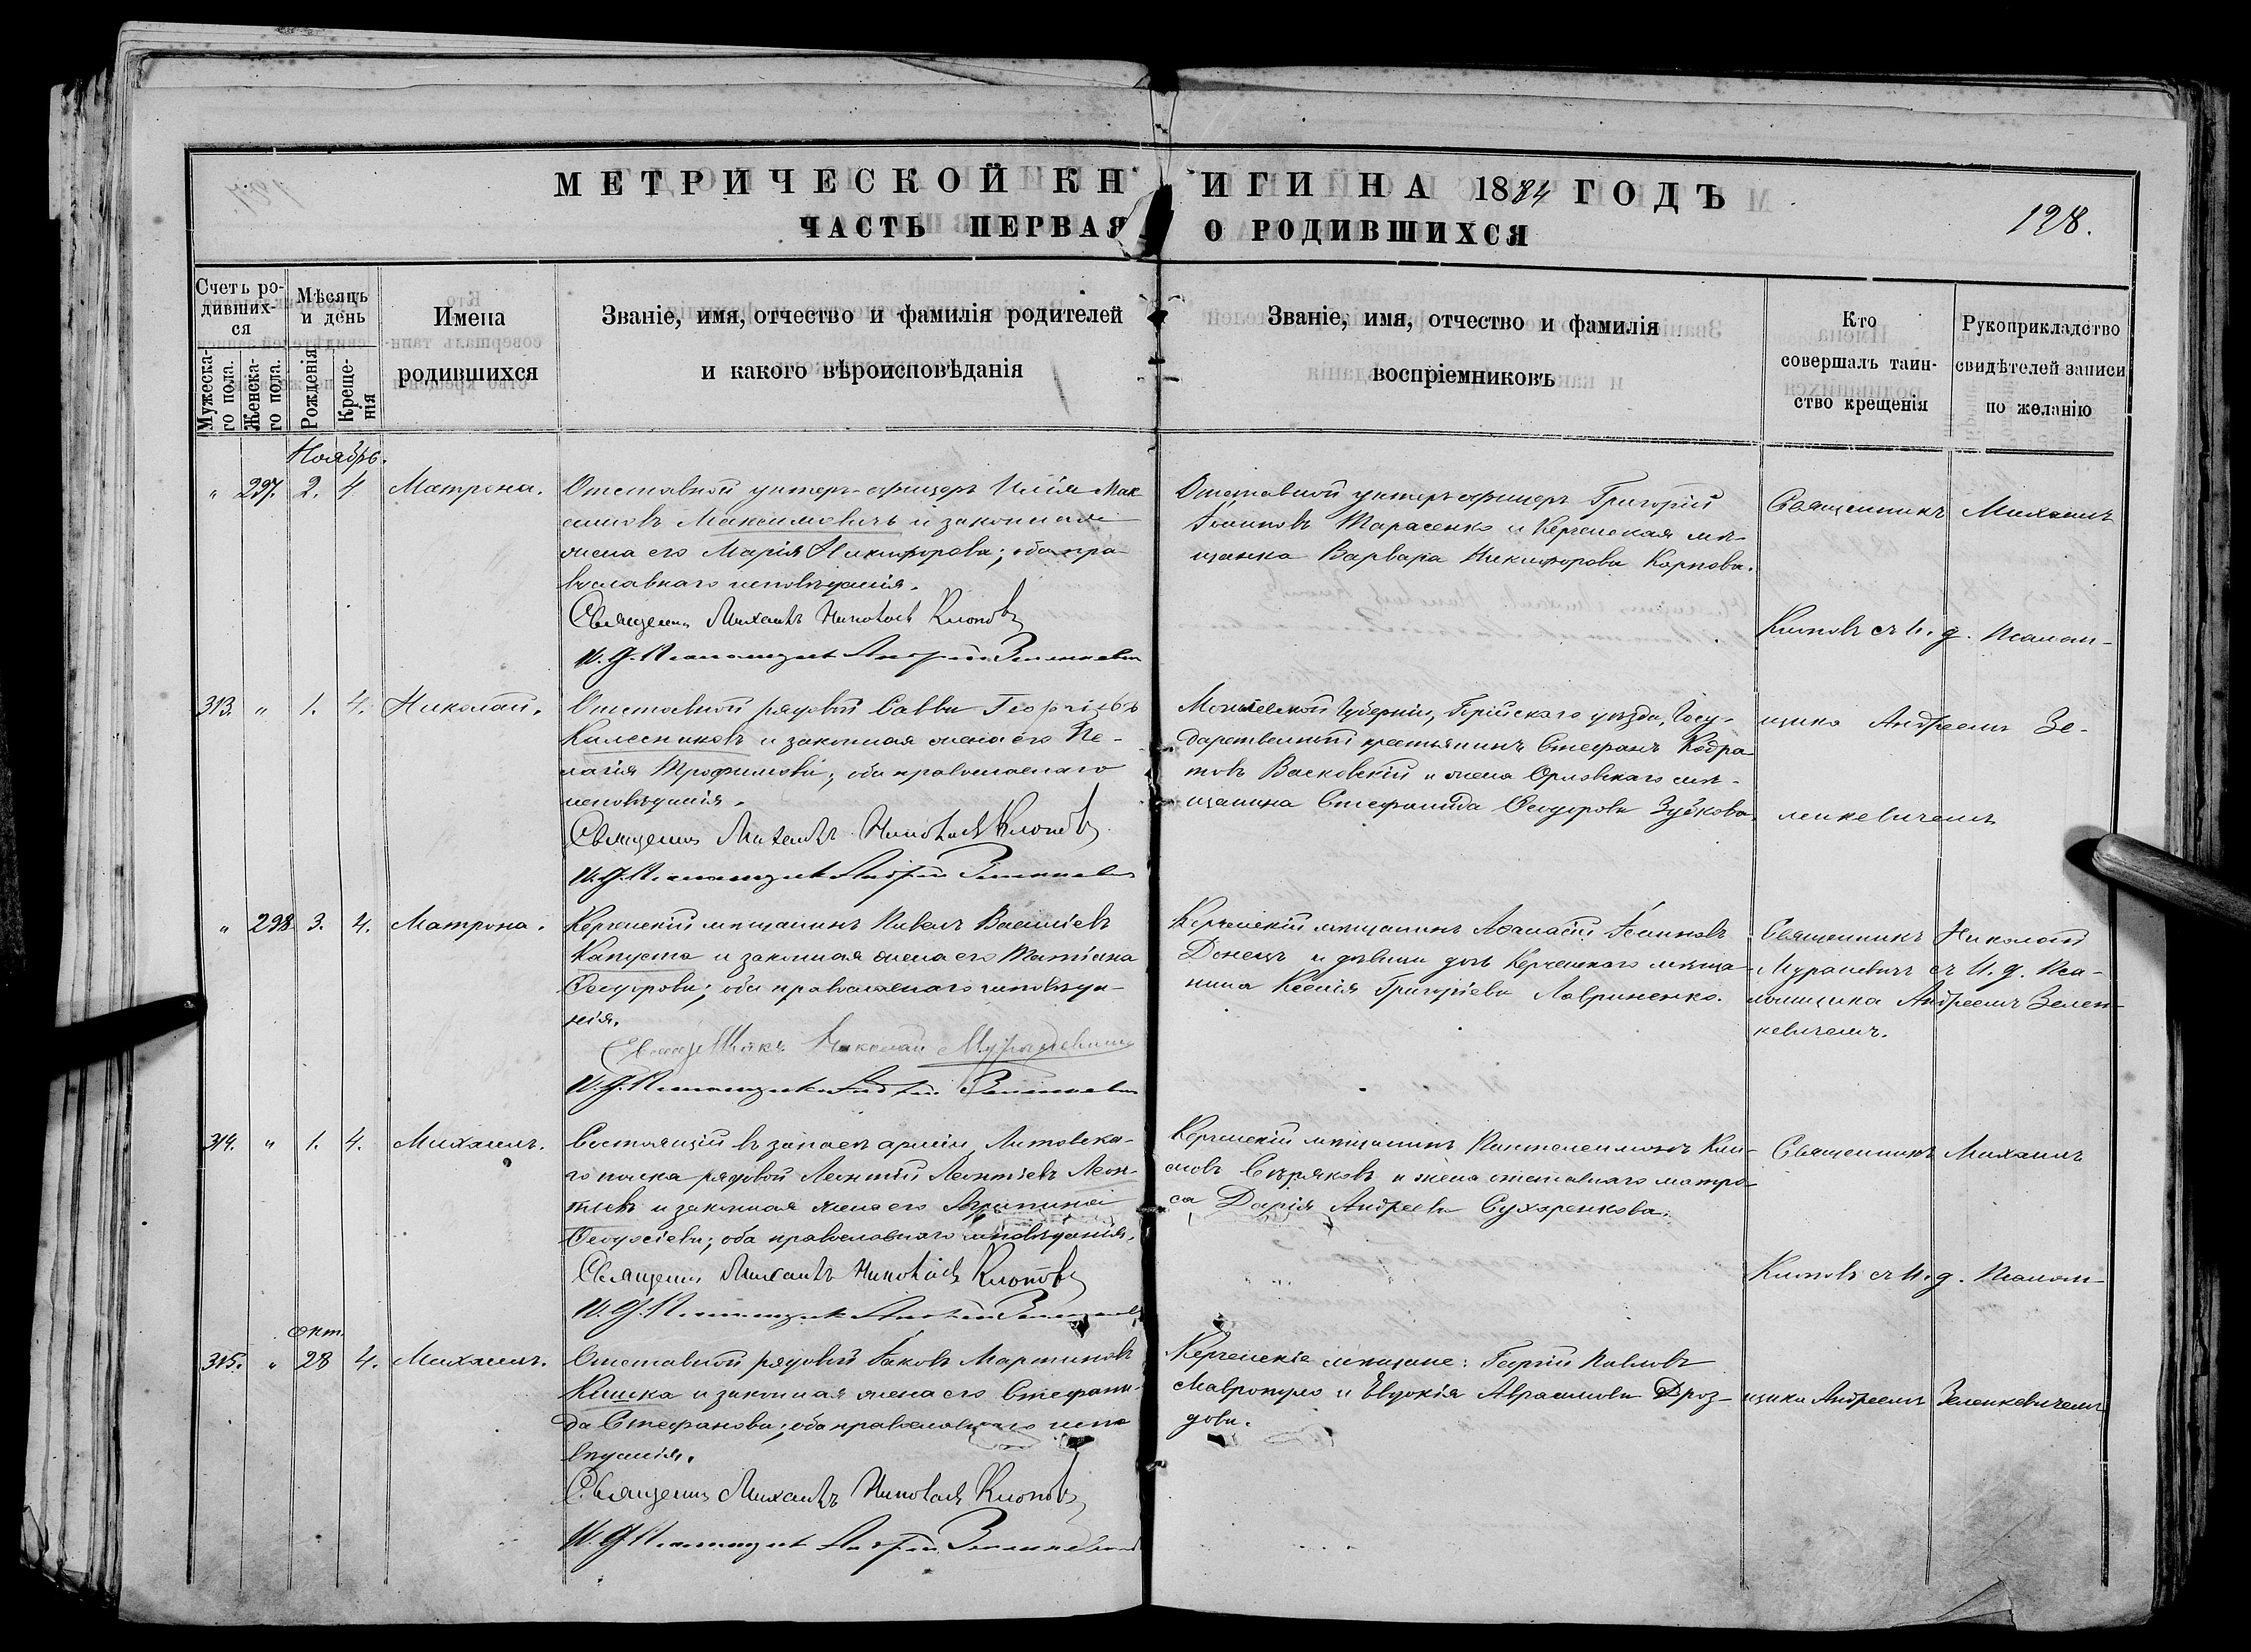 МЕТРИЧЕСКОЙ КНИГИ НА 1884 ГОДЪ
ЧАСТЬ ПЕРВАЯ О РОДИВШИХСЯ
128.
Счетъ родившихся
Мужеска-го пола.
Женска-го пола.
Мѣсяцъ и день
Рожденія
Креще-нія
Имена
родившихся
Званіе, имя, отчество и фамилія родителей
и какого вѣроисповѣданія
Званіе, имя, отчество и фамилія
воспріемниковъ
Кто
совершалъ таин-
ство крещенія
Рукоприкладство
свидѣтелей записи
по желанію
Ноябрь.
" 297. 2. 4 Матрона.
Отставной унтеръ-офицеръ Илія Мак-
симовъ Максимовичъ и законная
жена его Марія Никифорова; оба пра-
вославнаго исповѣданія.
Священник Михаилъ Николаев Клоповъ
И. д. Псаломщика Андрей Зеленкевич
Отставной унтеръ офицеръ Григорій
Іоанновъ Тарасенко и Керченская мѣ-
щанка Варвара Никифорова Карпова.
Священникъ Михаилъ
Клоповъ съ И. д. Псалом-
313. " 1. 4. Николай.
Отставной рядовой Савва Георгіевъ
Калесниковъ и законная жена его Пе-
лагія Трофимова; оба православнаго
исповѣданія.
Священник Михаилъ Николаев Клоповъ
И. д. Псаломщика Андрей Зеленкевич
Могилевской Губерніи, уѣзда, Госу-
дарственный крестьянинъ Стефанъ Кодра-
товъ Васковскій и жена Орловскаго мѣ-
щанина Стефанида Феодорова Зубкова.
щика Андреемъ Зе-
ленкевичемъ
" 298 3. 4. Матрона.
Керченскій мѣщанинъ Павелъ Василіевъ
Капуста и законная жена его Татіана
Феодорова; оба православнаго исповѣда-
нія.
Священникъ Николай Мурашевичъ
И. д. Псаломщика Андрей Зеленкевич
Керченскій мѣщанинъ Афанасій Іоанновъ
Донецъ и дѣвица дочь Керченскаго мѣща-
нина Ксенія Григоріева Лавриненко.
Священникъ Николай
съ И. д. Пса-
ломщика Андреемъ Зелен-
кевичемъ.
314. " 1. 4. Михаилъ.
Состоящій въ запасѣ арміи, Литовска-
го полка рядовой Леонтій Леонтіевъ Леон-
тьевъ и законная жена его Агрипина
Феодосіева; оба православнаго исповѣданія.
Священник Михаилъ Николаев Клоповъ
И. д. Псаломщика Андрей Зеленкевич
Керченскій мѣщанинъ Пантелеимонъ Кли-
мовъ и жена отставнаго матро-
са Дарія Андреева Сухаренкова.
Священникъ Михаилъ
Клоповъ съ И. д. Псалом-
окт.
315. " 28 4. Михаилъ.
Отставной рядовой Іаковъ Мартиновъ
Кишка и законная жена его Стефани-
да Стефанова; оба православнаго испо
вѣданія.
Священник Михаилъ Николаев Клоповъ
И. д. Псаломщика Андрей Зеленкевич
Керченскіе мѣщане: Георгій Павловъ
Мавропуло и Евдокія Авраамова Дроз-
дова.
щика Андреемъ Зеленкевичемъ